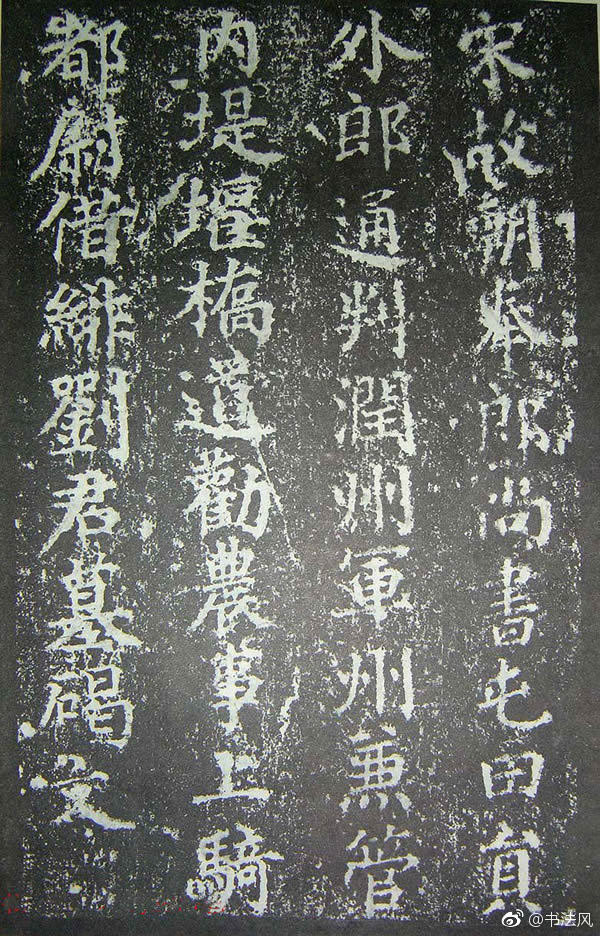 宋故朝奉郎尚書屯田員
外郎通判潤州軍州兼管
內堤堰橋道勸農事上騎
都尉借緋劉君墓碣文
@书法风